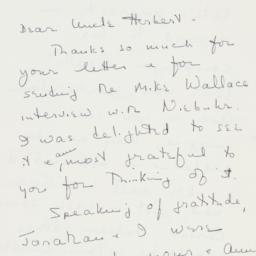 Dear Uncle Herbert -
Thanks so much for
your letter & for
sending the Mike Wallace
interview with Niebuhr.
I was delighted to see
it & am most grateful to
you for thinking of it.
Speaking of gratitude,
Jonathan & I were